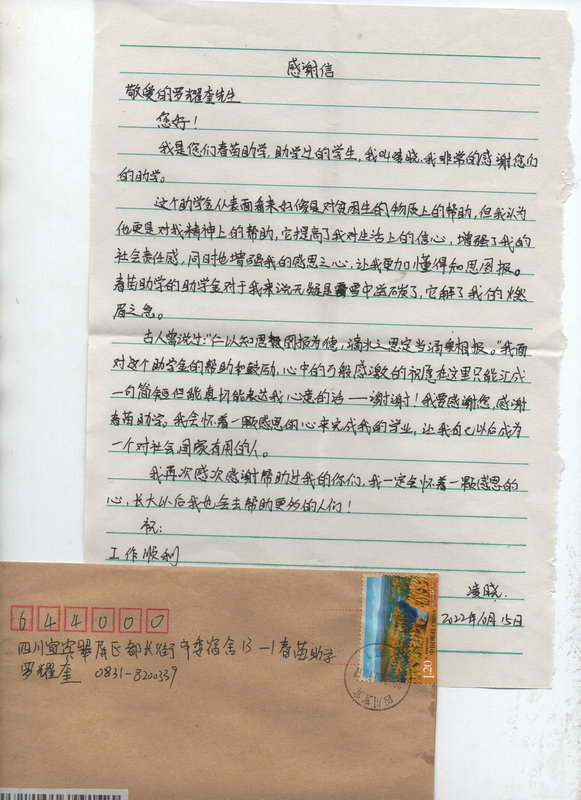 感谢信
敬爱的罗耀奎先生
您好！
我是您们春苗助学，助学过的学生，我叫凌晓，我非常的感谢您们
的助学。
这个助学金从表面看来好像是对贫困生的物质上的帮助，但我认为
他更是对我精神上的帮助，它提高了我对生活上的信心，增强了我的
社会责任感，同时也增强我的感恩之心，让我更加懂得知恩图报。
春苗助学的助学金对于我来说无疑是雪中送碳了，它解了我的燃
眉之急。
古人曾说过："仁以知恩图报为德，滴水之恩定当涌泉相报。"我面
对这个助学金的帮助和鼓励，心中的万般感激的祝愿在这里只能汇成
一句简短但能真切能表达我心意的话——谢谢！我要感谢您，感谢
春苗助学。我会怀着一颗感恩的心来完成我的学业，让我自己以后成为
一个对社会国家有用的人。
我再次感次感谢帮助过我的你们，我一定会怀着一颗感恩的
心，长大以后我也会去帮助更多的人们！
祝：
工作顺利
凌晓
2022年 月15日
644000
四川宜宾翠屏区都长街市委宿舍13-1春苗助学
罗耀奎 0831-8200339
1.20
四川宜宾